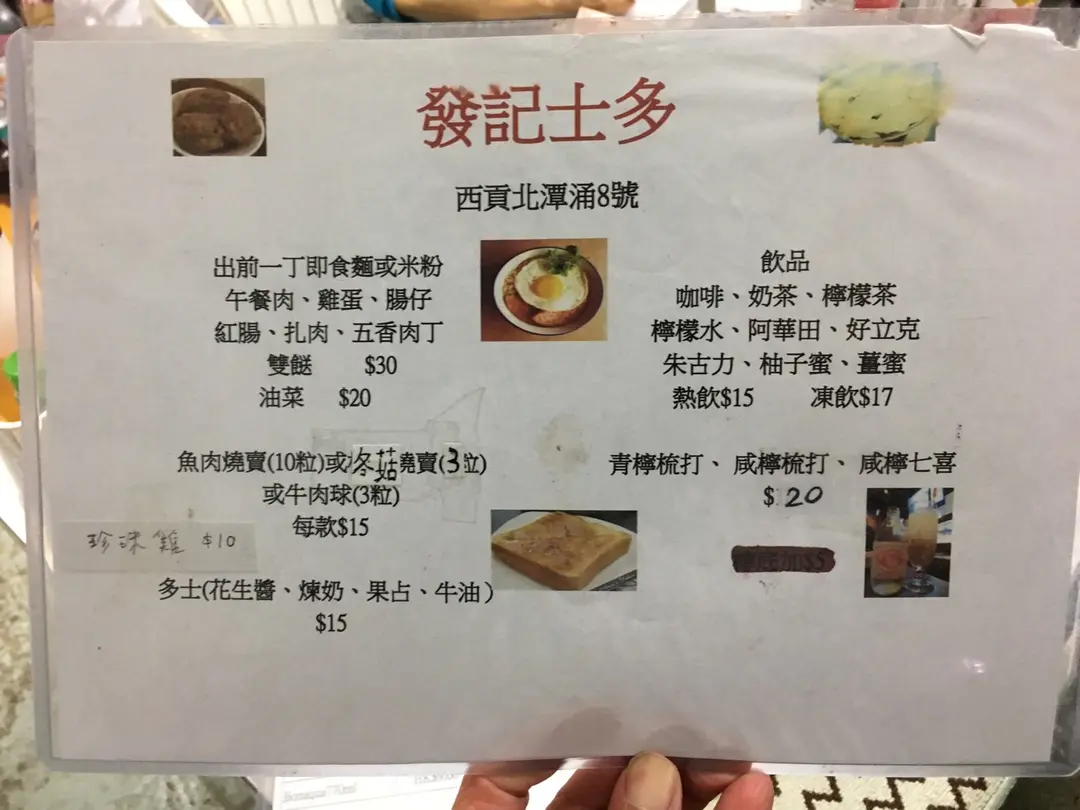 發記士多
西貢北潭涌8號
出前一丁即食麵或米粉
午餐肉、雞蛋、腸仔
紅腸、扎肉、五香肉丁
雙餸 $30
油菜 $20
魚肉燒賣(10粒)或冬菇燒賣(3粒)
或牛肉球(3粒)
每款$15
珍珠雞 $10
多士(花生醬、煉奶、果占、牛油)
$15
飲品
咖啡、奶茶、檸檬茶
檸檬水、阿華田、好立克
朱古力、柚子蜜、薑蜜
熱飲$15 凍飲$17
青檸梳打、咸檸梳打、咸檸七喜
$20